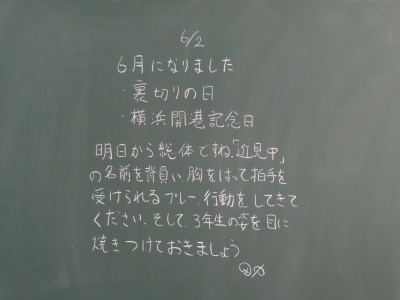 6/2
6月になりました
・裏切りの日
・横浜開港記念日
明日から総体ですね。「近見中」
の名前を背負い、胸をはって拍手を
受けられるプレー、行動をしてきて
ください。そして、3年生の姿を目に
焼きつけておきましょう